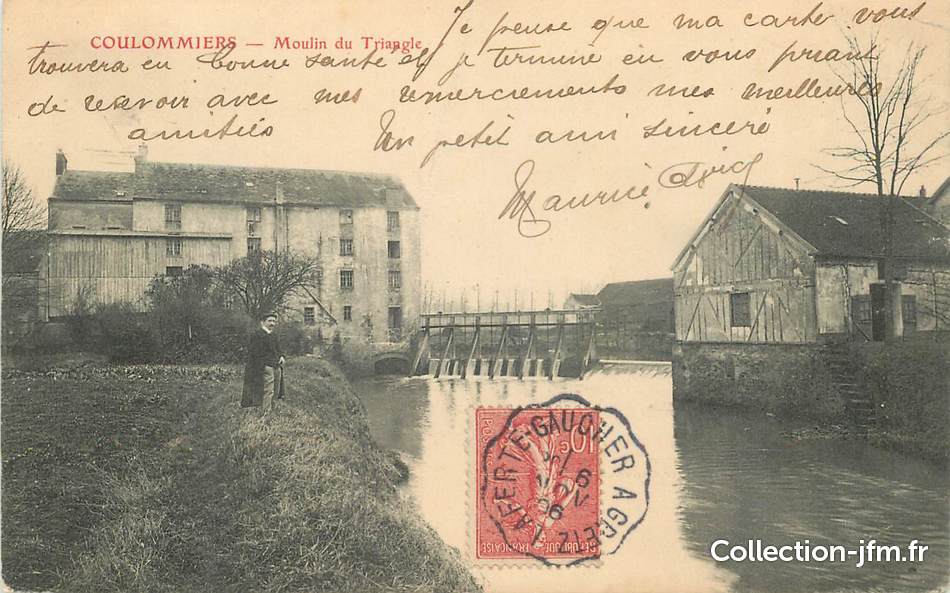 COULOMMIERS — Moulin du Triangle
Je pense que ma carte vous
trouvera en bonne santé et je termine en vous priant
de recevoir avec mes remerciements mes meilleures
amitiés
Un petit ami sincère
Maurice
LAFERTE-GAUCHER A GRETZ
6
NOV
06
POSTES
10 c
REPUBLIQUE FRANÇAISE
Collection-jfm.fr